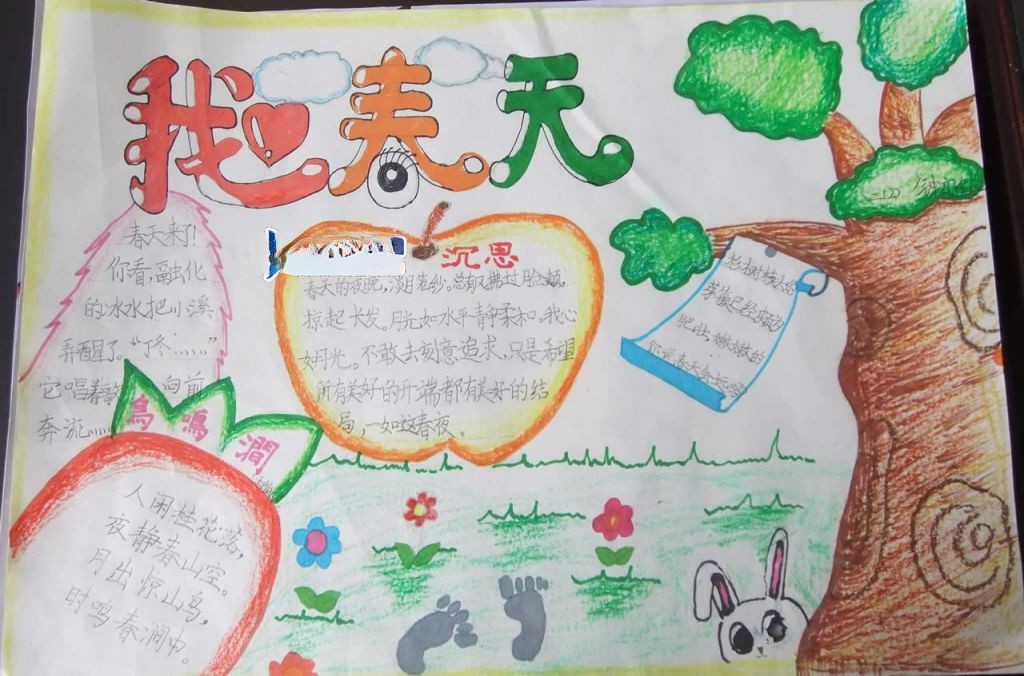 我 春天
春天来了!
你看,融化
的冰水把小溪
弄醒了。“丁冬……”
它唱着歌 向前
奔流……
沉思
春天的夜晚,淡月笼纱。总有风拂过脸颊,
掠起长发。月光如水平静柔和。我心
如月光。不敢去刻意追求,只是希望
所有美好的开端都有美好的结
局,一如这春夜。
鸟鸣涧
人闲桂花落,
夜静春山空。
月出惊山鸟,
时鸣春涧中。